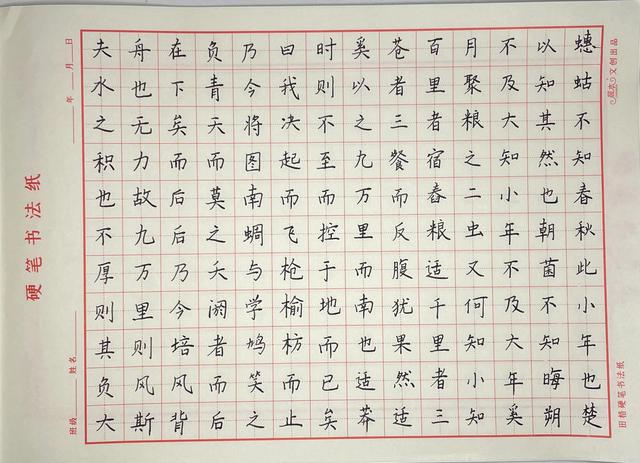 硬笔书法纸
班级 姓名 年 月 日
夫水之积也不厚则其负大
舟也无力故九万里则风斯
在下矣而后后乃今培风背
负青天而莫之夭阏者而后
乃今将图南蜩与学鸠笑之
曰我决起而飞枪榆枋而止
时则不至而控于地而已矣
奚以之九万里而南也适莽
苍者三餐而反腹犹果然适
百里者宿舂粮适千里者三
月聚粮之二虫又何知小知
不及大知小年不及大年奚
以知其然也朝菌不知晦朔
蟪蛄不知春秋此小年也楚
田楷硬笔书法纸
文创出品